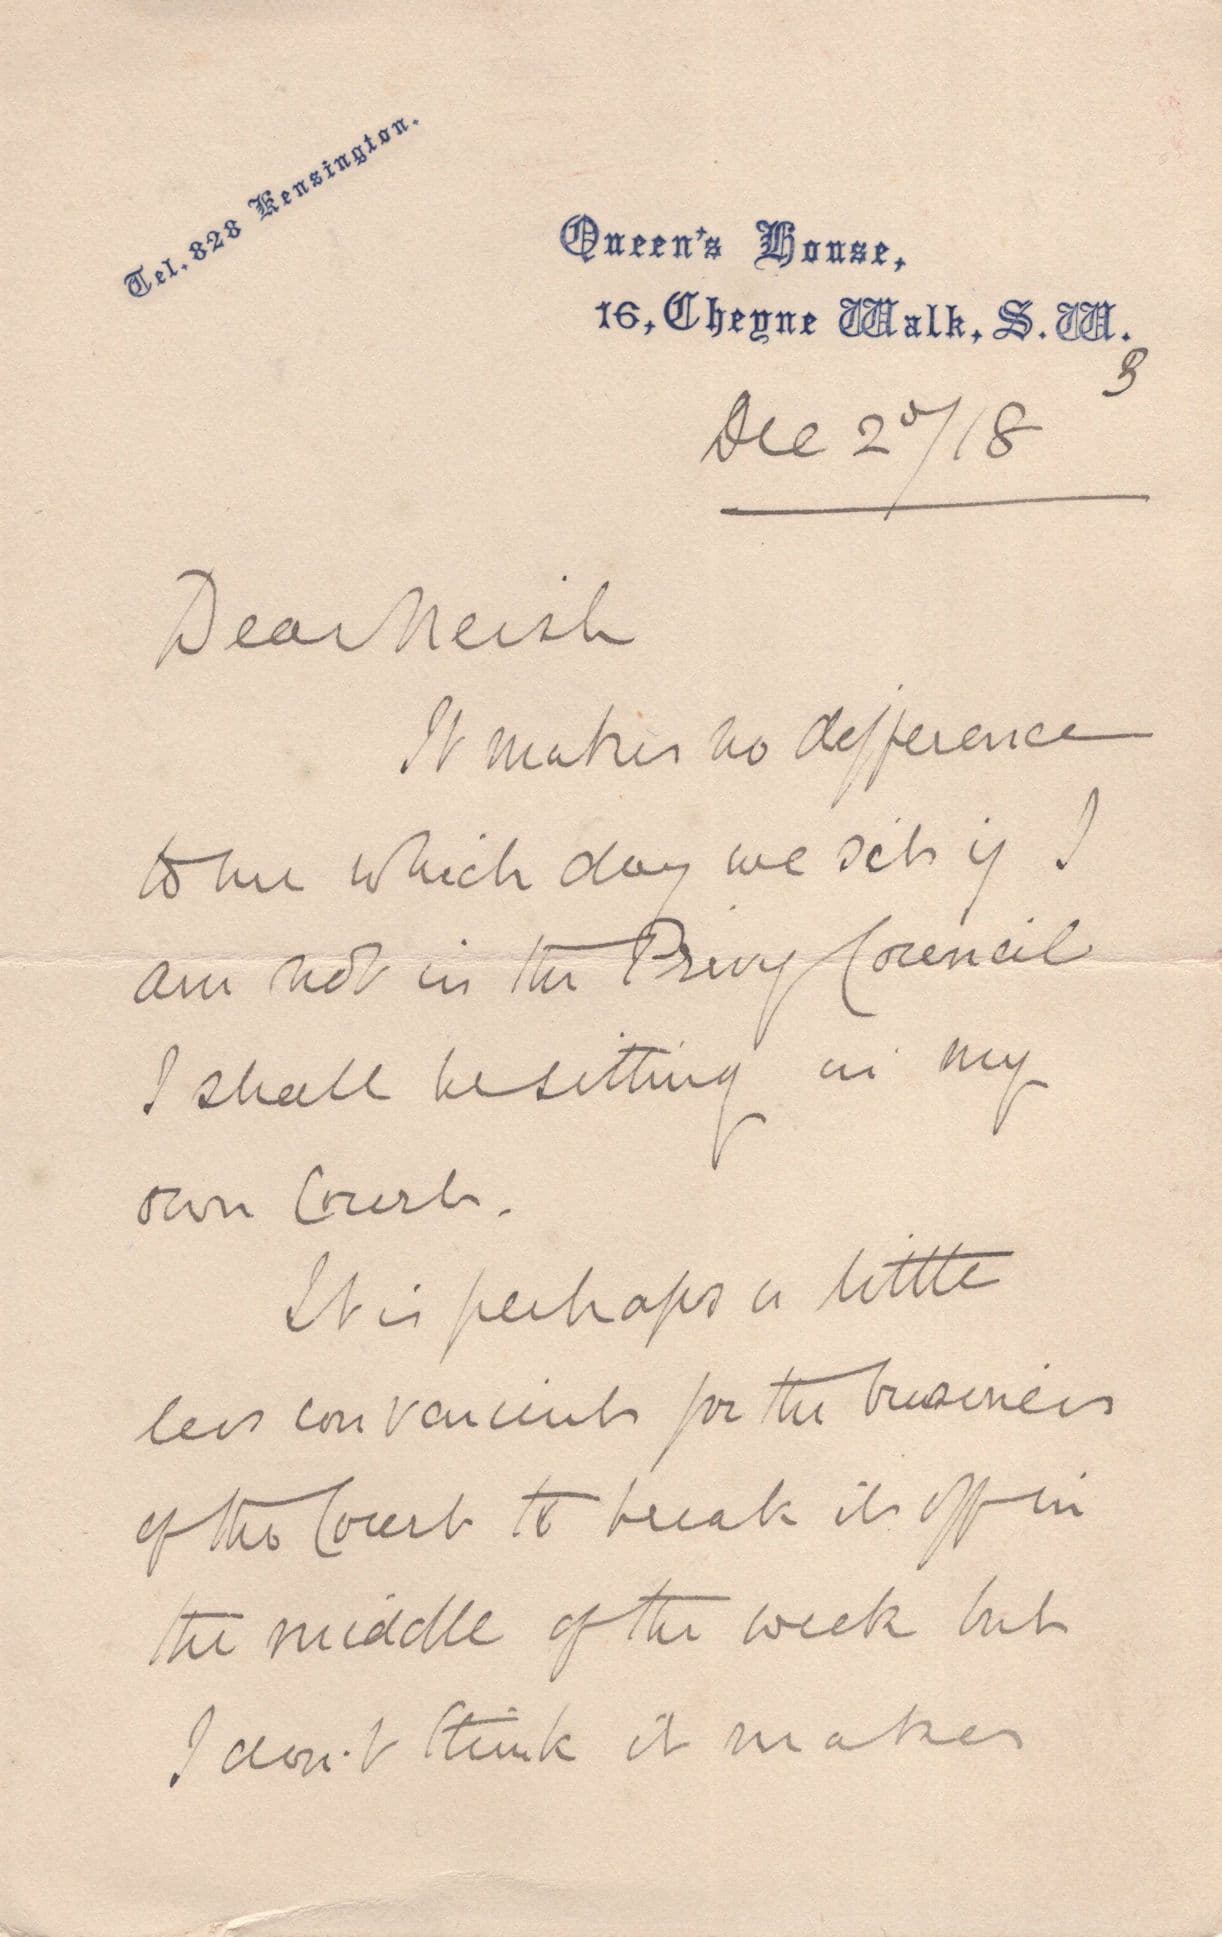 Tel. 828 Kensington.
Queen's House,
16, Cheyne Walk, S.W.
3
Dec 20/18
Dear Neish
It makes no difference
to me which day we sit if I
am not in the Privy Council
I shall be sitting in my
own Court.
It is perhaps a little
less convenient for the business
of the Court to break it off in
the middle of the week but
I don't think it makes